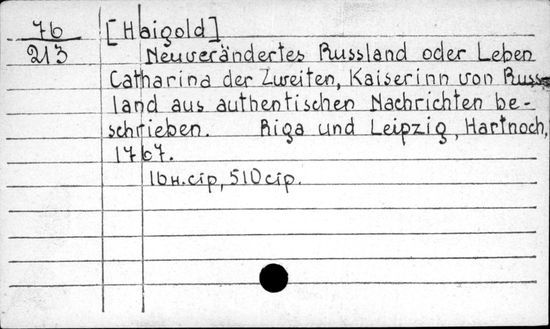 76 [Haigold]
213 Neuverändertes Russland oder Leben
Catharina der Zweiten, Kaiserinn von Russ-
land aus authentischen Nachrichten be-
schrieben. Riga und Leipzig, Hartnoch,
1767.
16н.стр, 510стр.